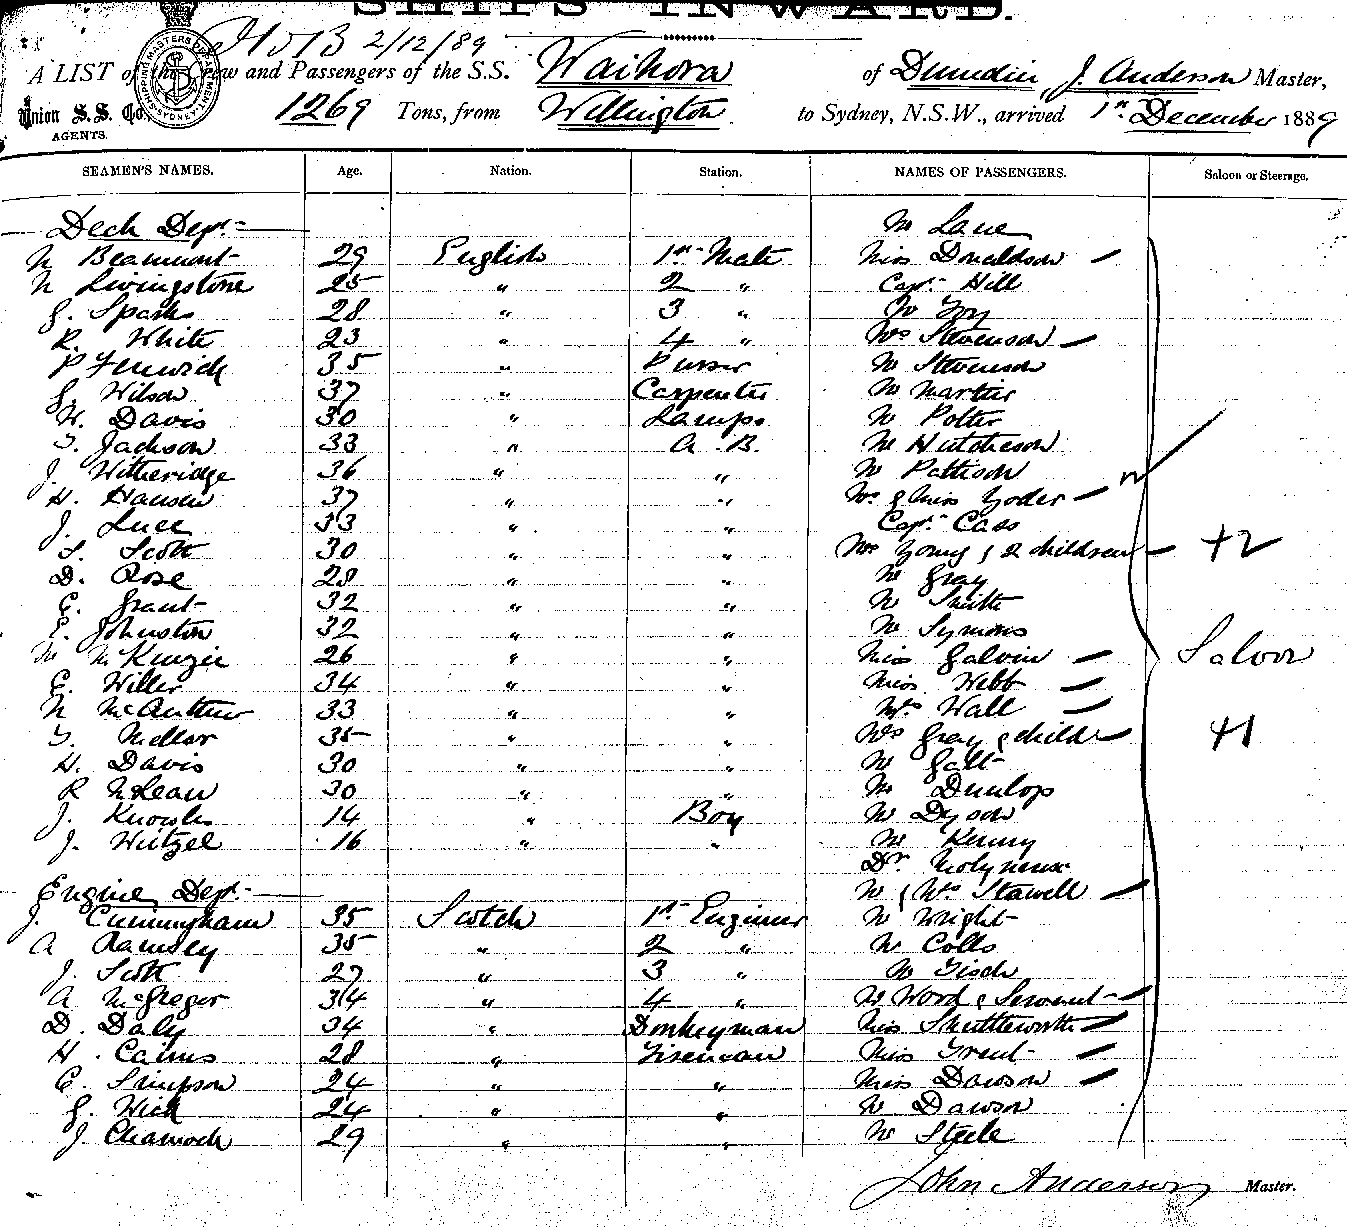 SHIPS INWARD.
H o B 2/12/89
A LIST of the Crew and Passengers of the S.S. Waihora of Dunedin, J. Anderson Master,
Union S. S. Co. 1269 Tons, from Wellington to Sydney, N.S.W., arrived 1st December 1889
AGENTS.
SHIPPING MASTERS DEPARTMENT SYDNEY
SEAMEN'S NAMES. Age. Nation. Station. NAMES OF PASSENGERS. Saloon or Steerage.
Deck Dept. Mr Lane
Beaumont 29 English 1st Mate Miss Donaldson
Livingstone 25 " 2 " Capt. Hill
G. Sparks 28 " 3 "
R. White 23 " 4 " Mrs Stevenson
P Fenwick 35 " Purser Mr Stevenson
G. Wilson 37 " Carpenter Mr Martin
W. Davis 30 " Lamps Mr Potter
T. Jackson 33 " A. B. Mr Hutcheson
J. Witheridge 36 " " Mr Pattison
H. Hansen 37 " " Mr & Miss Yoder
J. Luce 33 " " Capt. Cass
S. Scott 30 " " Mrs Young & 2 children +2
D. Rose 28 " " Mr Gray
C. Grant 32 " " Mr Smith
E. Johnston 32 " " Mr Symons
McKenzie 26 " " Miss Galvin Saloon
E. Willer 34 " " Miss Webb
N McArthur 33 " " Mrs Wall
T. Mellor 35 " " Mrs Gray & child +1
H. Davis 30 " " Mr Galt
R McLean 30 " " Mr Dunlop
J. Knowles 14 " Boy Mr Dyson
J. Wetzel 16 " " Mr Kenny
Dr. Molyneux
Engine Dept. Mr & Mrs Stawell
J. Cunningham 35 Scotch 1st Engineer Mr Wright
A Ramsey 35 " 2 " Mr Colls
J. Scott 27 " 3 " Mr Tisch
A McGregor 34 " 4 " Mr Wood & Servant
D. Daly 34 " Donkeyman Miss Shuttleworth
H. Cairns 28 " Fireman Miss Trent
C. Simpson 24 " " Miss Dawson
G. Wick 24 " " Mr Dawson
J Charnock 29 " " Mr Steele
John Anderson Master.